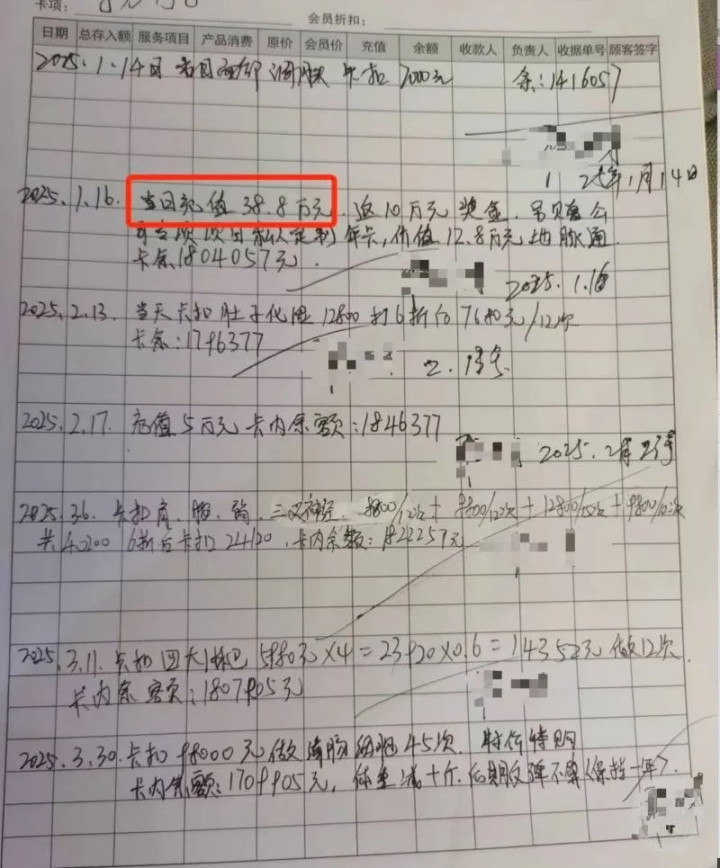 卡项:
会员折扣:
日期 总存入额 服务项目 产品消费 原价 会员价 充值 余额 收款人 负责人 收据单号 顾客签字
2025.1.14日 当日 调肤 卡扣 7000元 余:1416057
25年1月14日
2025.1.16. 当日充值 38.8万元. 返10万元奖金.
私人定制年卡,价值12.8万元地脉通
卡余1804057元.
2025.1.16
2025.2.13. 当天卡扣肚子化湿 12800 打6折后 7680元/12次
卡余:1796377
2.13号
2025.2.17. 充值5万元 卡内余额:1846377
2025.2月23号
2025.3.6. 卡扣肩、腿、三叉神经. 9800/12次+9800/12次+12800/12次+9800/12次
共40200 6折后卡扣24120. 卡内余额:1822257元
2025.3.11. 卡扣四大淋巴 5980元×4=23920×0.6=14352元 做12次.
卡内余额:1807905元
2025.3.30. 卡扣98000元做 45次. 特价特购
卡内余额:1709905元, 体重减十斤.后期反弹不算(保持一年).